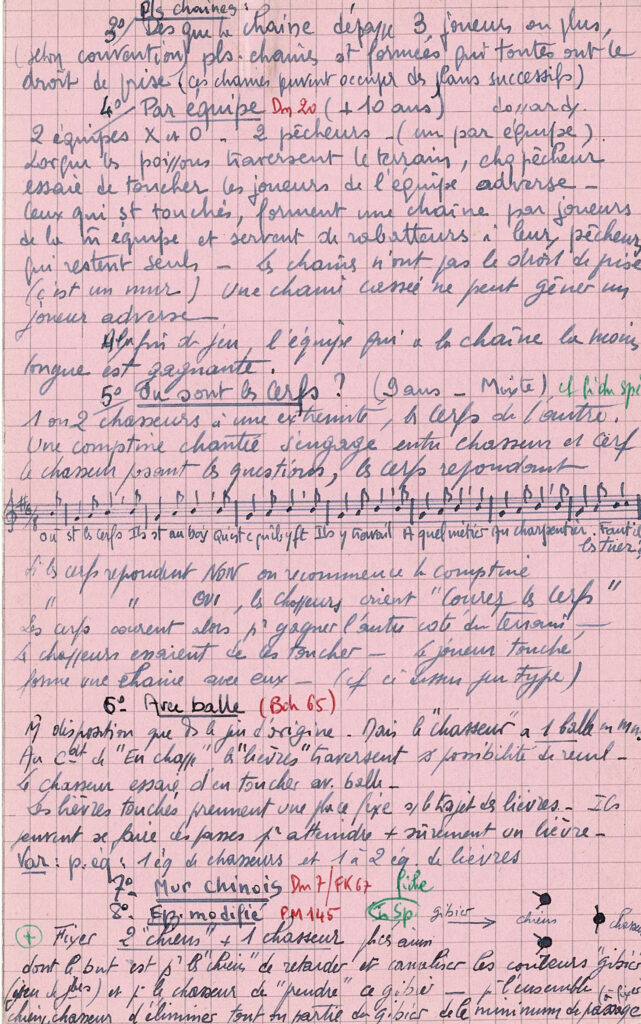 Pls chaines :
3° Dès que la chaine dépasse 3 joueurs ou plus,
(selon convention) pls. chaines st formées qui toutes ont le
droit de prise (ces chaines peuvent occuper des plans successifs)
4° Par équipe Dm 20 (+ 10 ans) dossards.
2 équipes X et O - 2 pêcheurs - (un par équipe).
Lorsque les poissons traversent le terrain, chq pêcheur
essaie de toucher les joueurs de l'équipe adverse -
Ceux qui st touchés, forment une chaîne par joueurs
de la m̄ équipe et servent de rabatteurs à leur, pêcheur
qui restent seuls - Les chaînes n'ont pas le droit de prise
(c'est un mur) Une chaine cassée ne peut gêner un
joueur adverse -
A la fin du jeu, l'équipe qui a la chaîne la moins
longue est gagnante.
5° Où sont les cerfs ? (9 ans - Mixte) cf fichu spé
1 ou 2 chasseurs à une extremité, les cerfs de l'autre.
Une comptine chantée s'engage entre chasseur et cerf
le chasseur posant les questions, les cerfs répondant
Ou st les cerfs Ils st au bois Qu'est c'qu'ils y ft Ils y travaill A quel métier Au charpentier. Faut il
les tuer ?
Si les cerfs repondent NON on recommence la comptine
" " OUI, les chasseurs crient "Courez les cerfs"
Les cerfs courent alors pr gagner l'autre coté du terrain -
les chasseurs essaient de les toucher - le joueur touché
forme une chaine avec eux - (cf ci dessus jeu type)
6° Avec balle (Bch 65)
M̄ disposition que ds le jeu d'origine. Mais le "chasseur" a 1 balle en mn.
Au Cdt de "En chasse" les "lièvres" traversent s possibilité de recul -
le chasseur essaie d'en toucher av. balle -
Les lièvres touchés prennent une place fixe s/ le trajet des lièvres - Ils
peuvent se faire des passes pr atteindre + sûrement un lièvre -
Var : p. éq : 1 éq de chasseurs et 1 à 2 éq. de lièvres
7° Mur chinois Dm 7/FK67 fiche
8° Ep. modifié PM 145 En Sp. gibier → chiens chasseur
+ Fixer 2 "chiens" + 1 chasseur
dont le but est pr les "chiens" de retarder et canaliser les couleurs "gibier"
(jeu de jbes) et pr le chasseur de "prendre" ce gibier - pr l'ensemble
chiens, chasseur d'éliminer tout ou partie du gibier ds le minimum de passages